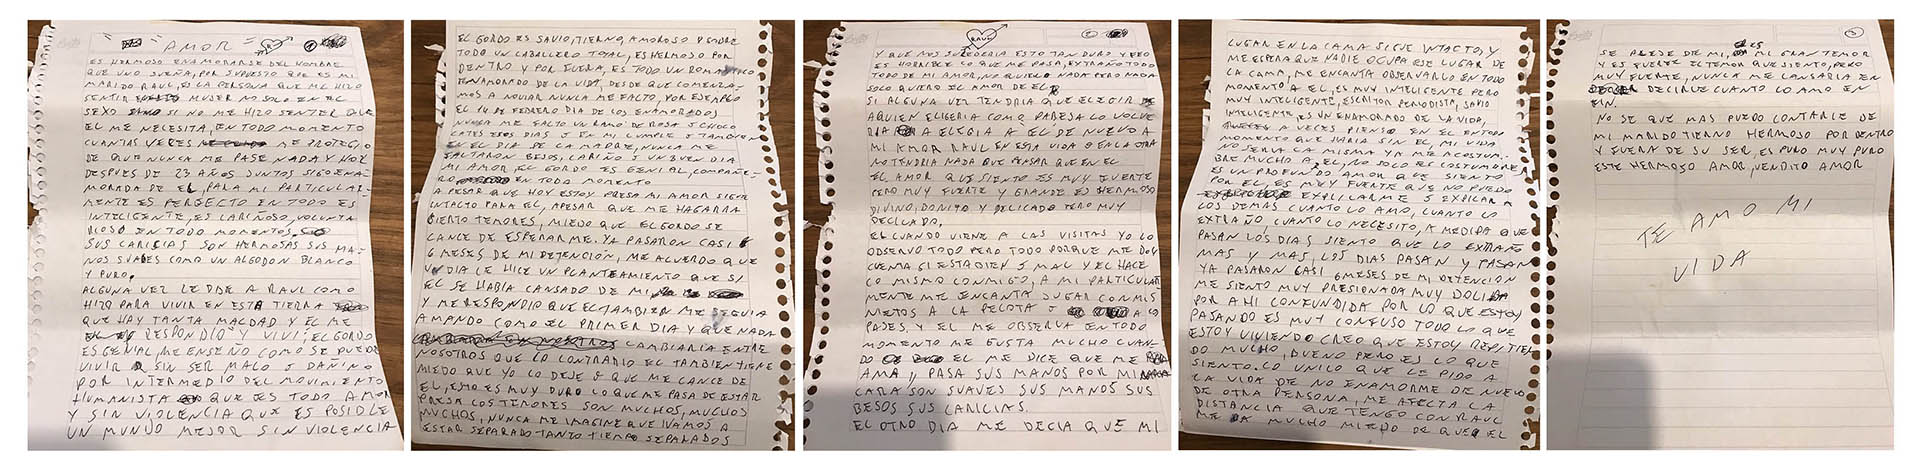 "AMOR"
ES HERMOSO ENAMORARSE DEL HOMBRE
QUE UNO SUEÑA, POR SUPUESTO QUE ES MI
MARIDO RAUL, ES LA PERSONA QUE ME HIZO
SENTIR MUJER NO SOLO EN EL
SEXO SI NO ME HIZO SENTER QUE
EL ME NECESITA, EN TODO MOMENTO
CUANTAS VECES ME PROTEGIO
DE QUE NUNCA ME PASE NADA Y HOY
DESPUES DE 23 AÑOS JUNTOS SIGO ENA-
MORADA DE EL, PARA MI PARTICULAR-
MENTE ES PERFECTO EN TODO ES
INTELIGENTE, ES CARIÑOSO, VOLUNTA
RIOSO EN TODO MOMENTOS,
SUS CARICIAS SON HERMOSAS SUS MA-
NOS SUABES COMO UN ALGODON BLANCO
Y PURO.
ALGUNA VEZ LE DIJE A RAUL COMO
HIZO PARA VIVIR EN ESTA TIERRA
QUE HAY TANTA MALDAD Y EL ME
RESPONDIO VIVI; EL GORDO
ES GENIAL, ME ENSEÑO COMO SE PUEDE
VIVIR SIN SER MALO Y DAÑINO
POR INTERMEDIO DEL MOVIMIENTO
HUMANISTA QUE ES TODO AMOR
Y SIN VIOLENCIA QUE ES POSIBLE
UN MUNDO MEJOR SIN VIOLENCIA
EL GORDO ES SAVIO, TIERNO, AMOROSO PADRE
TODO UN CABALLERO TOTAL, ES HERMOSO POR
DENTRO Y POR FUERA, ES TODO UN ROMANTICO
ENAMORADO DE LA VIDA, DESDE QUE COMENZA-
MOS A NOVIAR NUNCA ME FALTO, POR EJEMPLO
EL 14 DE FEBRERO DIA DE LOS ENAMORADOS
NUNCA ME FALTO UN RAMO DE ROSA Y CHOCO
LATES ESOS DIAS Y EN MI CUMPLE Y TAMBIEN
EN EL DIA DE LA MADRE, NUNCA ME
FALTARON BESOS, CARIÑO Y UN BUEN DIA
MI AMOR, EL GORDO ES GENIAL, COMPAÑE-
RO EN TODO MOMENTO
A PESAR QUE HOY ESTOY PRESA MI AMOR SIGUE
INTACTO PARA EL, APESAR QUE ME HAGARRA
SIERTO TEMORES, MIEDO QUE EL GORDO SE
CANCE DE ESPERARME. YA PASARON CASI
6 MESES DE MI DETENCION, ME ACUERDO QUE
UN DIA LE HICE UN PLANTEAMIENTO QUE SI
EL SE HABIA CANSADO DE MI
Y ME RESPONDIO QUE EL TAMBIEN ME SEGUIA
AMANDO COMO EL PRIMER DIA Y QUE NADA
CAMBIARIA ENTRE
NOSOTROS QUE LO CONTRARIO EL TAMBIEN TIENE
MIEDO QUE YO LO DEJE O QUE ME CANCE DE
EL, ESTO ES MUY DURO LO QUE ME PASA DE ESTAR
PRESA LOS TEMORES SON MUCHOS, MUCHOS
MUCHOS, NUNCA ME IMAGINE QUE IVAMOS A
ESTAR SEPARADO TANTO TIEMPO SEPARADOS
RAUL
Y QUE NOS SUCEDERIA ESTO TAN DURO Y FEO
ES HORRIBLE LO QUE ME PASA, EXTRAÑO TODO
TODO DE MI AMOR, NO QUIERO NADA PERO NADA
SOLO QUIERO EL AMOR DE EL
SI ALGUNA VEZ TENDRIA QUE ELEGIR
AQUIEN ELIGERIA COMO PAREJA LO VOLVE
RIA A ELEGIA A EL DE NUEVO A
MI AMOR RAUL EN ESTA VIDA O EN LA OTRA
NO TENDRIA NADA QUE PENSAR QUE EN EL
EL AMOR QUE SIENTO ES MUY FUERTE
PERO MUY FUERTE Y GRANDE ES HERMOSO
DIVINO, BONITO Y DELICADO PERO MUY
DELICADO.
EL CUANDO VIENE A LAS VISITAS YO LO
OBSERVO TODO PERO TODO PORQUE ME DOY
CUENTA SI ESTA BIEN Y MAL Y EL HACE
LO MISMO CONMIGO, A MI PARTICULAR-
MENTE ME ENCANTA JUGAR CON MIS
NIETOS A LA PELOTA Y A LO
PASES, Y EL ME OBSERVA EN TODO
MOMENTO ME GUSTA MUCHO CUAN-
DO EL ME DICE QUE ME
AMA, Y PASA SUS MANOS POR MI
CARA SON SUAVES SUS MANOS SUS
BESOS SUS CARICIAS.
EL OTRO DIA ME DECIA QUE MI
LUGAR EN LA CAMA SIGUE INTACTO, Y
ME ESPERA QUE NADIE OCUPA ESE LUGAR DE
LA CAMA, ME ENCANTA OBSERVARLO EN TODO
MOMENTO A EL, ES MUY INTELIGENTE PERO
MUY INTELIGENTE, ESCRITOR PERIODISTA, SAVIO
INTELIGENTE, ES UN ENAMORADO DE LA VIDA,
A VECES PIENSO EN EL EN TODO
MOMENTO QUE HARIA SIN EL, MI VIDA
NO SERIA LA MISMA YA ME ACOSTUM-
BRE MUCHO A EL, NO SOLO ES COSTUMBRE
ES UN PROFUNDO AMOR QUE SIENTO
POR EL, ES MUY FUERTE QUE NO PUEDO
EXPLICARME Y EXPLICAR A
LOS DEMAS CUANTO LO AMO, CUANTO LO
EXTRAÑO, CUANTO LO NECESITO, A MEDIDA QUE
PASAN LOS DIAS SIENTO QUE LO EXTRAÑO
MAS Y MAS, LOS DIAS PASAN Y PASAN
YA PASARON CASI 6 MESES DE MI DETENCION
ME SIENTO MUY PRESIONADA MUY DOLIDA
POR AHI CONFUNDIDA POR LO QUE ESTOY
PASANDO ES MUY CONFUSO TODO LO QUE
ESTOY VIVIENDO CREO QUE ESTOY REPITIEN
DO MUCHO, BUENO PERO ES LO QUE
SIENTO. LO UNICO QUE LE PIDO A
LA VIDA DE NO ENAMORME DE NUEVO
DE OTRA PERSONA, ME AFECTA LA
DISTANCIA QUE TENGO CON RAUL
ME DA MUCHO MIEDO DE QUE EL
3
SE ALEJE DE MI, ES MI GRAN TEMOR
Y ES FUERTE EL TEMOR QUE SIENTO, PERO
MUY FUERTE, NUNCA ME CANSARIA EN
DECIRLE CUANTO LO AMO EN
FIN.
NO SE QUE MAS PUEDO CONTARLE DE
MI MARIDO TIERNO HERMOSO POR DENTRO
Y FUERA DE SU SER, EL PURO MUY PURO
ESTE HERMOSO AMOR, VENDITO AMOR
TE AMO MI
VIDA